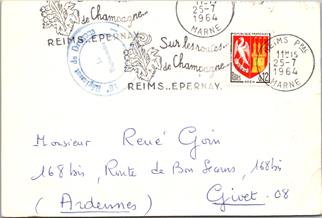 de Champagne
REIMS..EPERNAY.
11H15
25-7
1964
MARNE
Sur les routes
de Champagne
REIMS..EPERNAY.
REIMS
11H15
25-7
1964
MARNE
Monsieur René Goin
168 bis, Route de Bon Secours, 168 bis
(Ardennes) Givet. 08